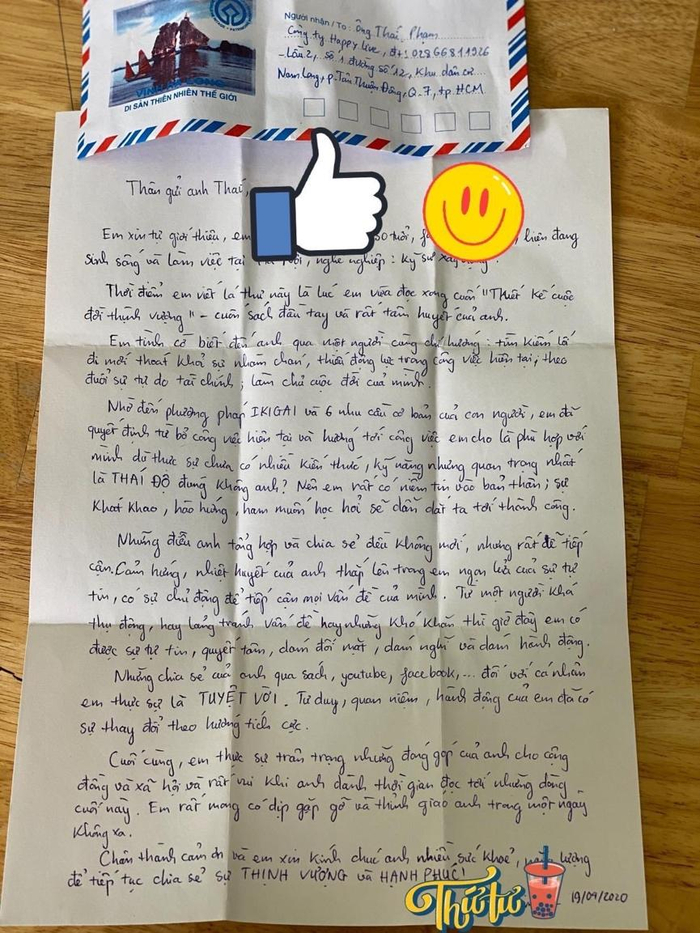 Người nhận / To: Ông Thái Phạm
Công ty Happy Live, đt: 02866811926
Lầu 2, số 1 đường số 12, Khu dân cư
Nam Long, P. Tân Thuận Đông, Q.7, tp. HCM
VỊNH HẠ LONG
DI SẢN THIÊN NHIÊN THẾ GIỚI
Thân gửi anh Thái,
Em xin tự giới thiệu, em 30 tuổi, hiện đang
sinh sống và làm việc tại nghề nghiệp: Kỹ sư xây dựng.
Thời điểm em viết lá thư này là lúc em vừa đọc xong cuốn "Thiết kế cuộc
đời thịnh vượng" - cuốn sách đầu tay và rất tâm huyết của anh.
Em tình cờ biết đến anh qua một người cùng chí hướng: tìm kiếm lối
đi mới thoát khỏi sự nhàm chán, thiếu động lực trong công việc hiện tại, theo
đuổi sự tự do tài chính; làm chủ cuộc đời của mình.
Nhờ đến phương pháp IKIGAI và 6 nhu cầu cơ bản của con người, em đã
quyết định từ bỏ công việc hiện tại và hướng tới công việc em cho là phù hợp với
mình dù thực sự chưa có nhiều kiến thức, kỹ năng nhưng quan trọng nhất
là THÁI ĐỘ đúng không anh? Nên em rất có niềm tin vào bản thân; sự
khát khao, hào hứng, ham muốn học hỏi sẽ dẫn dắt ta tới thành công.
Những điều anh tổng hợp và chia sẻ đều không mới, nhưng rất dễ tiếp
cận. Cảm hứng, nhiệt huyết của anh thắp lên trong em ngọn lửa của sự tự
tin, có sự chủ động để tiếp cận mọi vấn đề của mình. Từ một người khá
thụ động, hay lảng tránh vấn đề hay những khó khăn thì giờ đây em có
được sự tự tin, quyết tâm, dám đối mặt, dám nghĩ và dám hành động.
Những chia sẻ của anh qua sách, youtube, facebook,... đối với cá nhân
em thực sự là TUYỆT VỜI. Tư duy, quan niệm, hành động của em đã có
sự thay đổi theo hướng tích cực.
Cuối cùng, em thực sự trân trọng những đóng góp của anh cho cộng
đồng và xã hội và rất vui khi anh dành thời gian đọc tới những dòng
cuối này. Em rất mong có dịp gặp gỡ và thỉnh giáo anh trong một ngày
không xa.
Chân thành cảm ơn và em xin kính chúc anh nhiều sức khoẻ, lượng
để tiếp tục chia sẻ sự THỊNH VƯỢNG và HẠNH PHÚC!
Thứ tư
19/09/2020